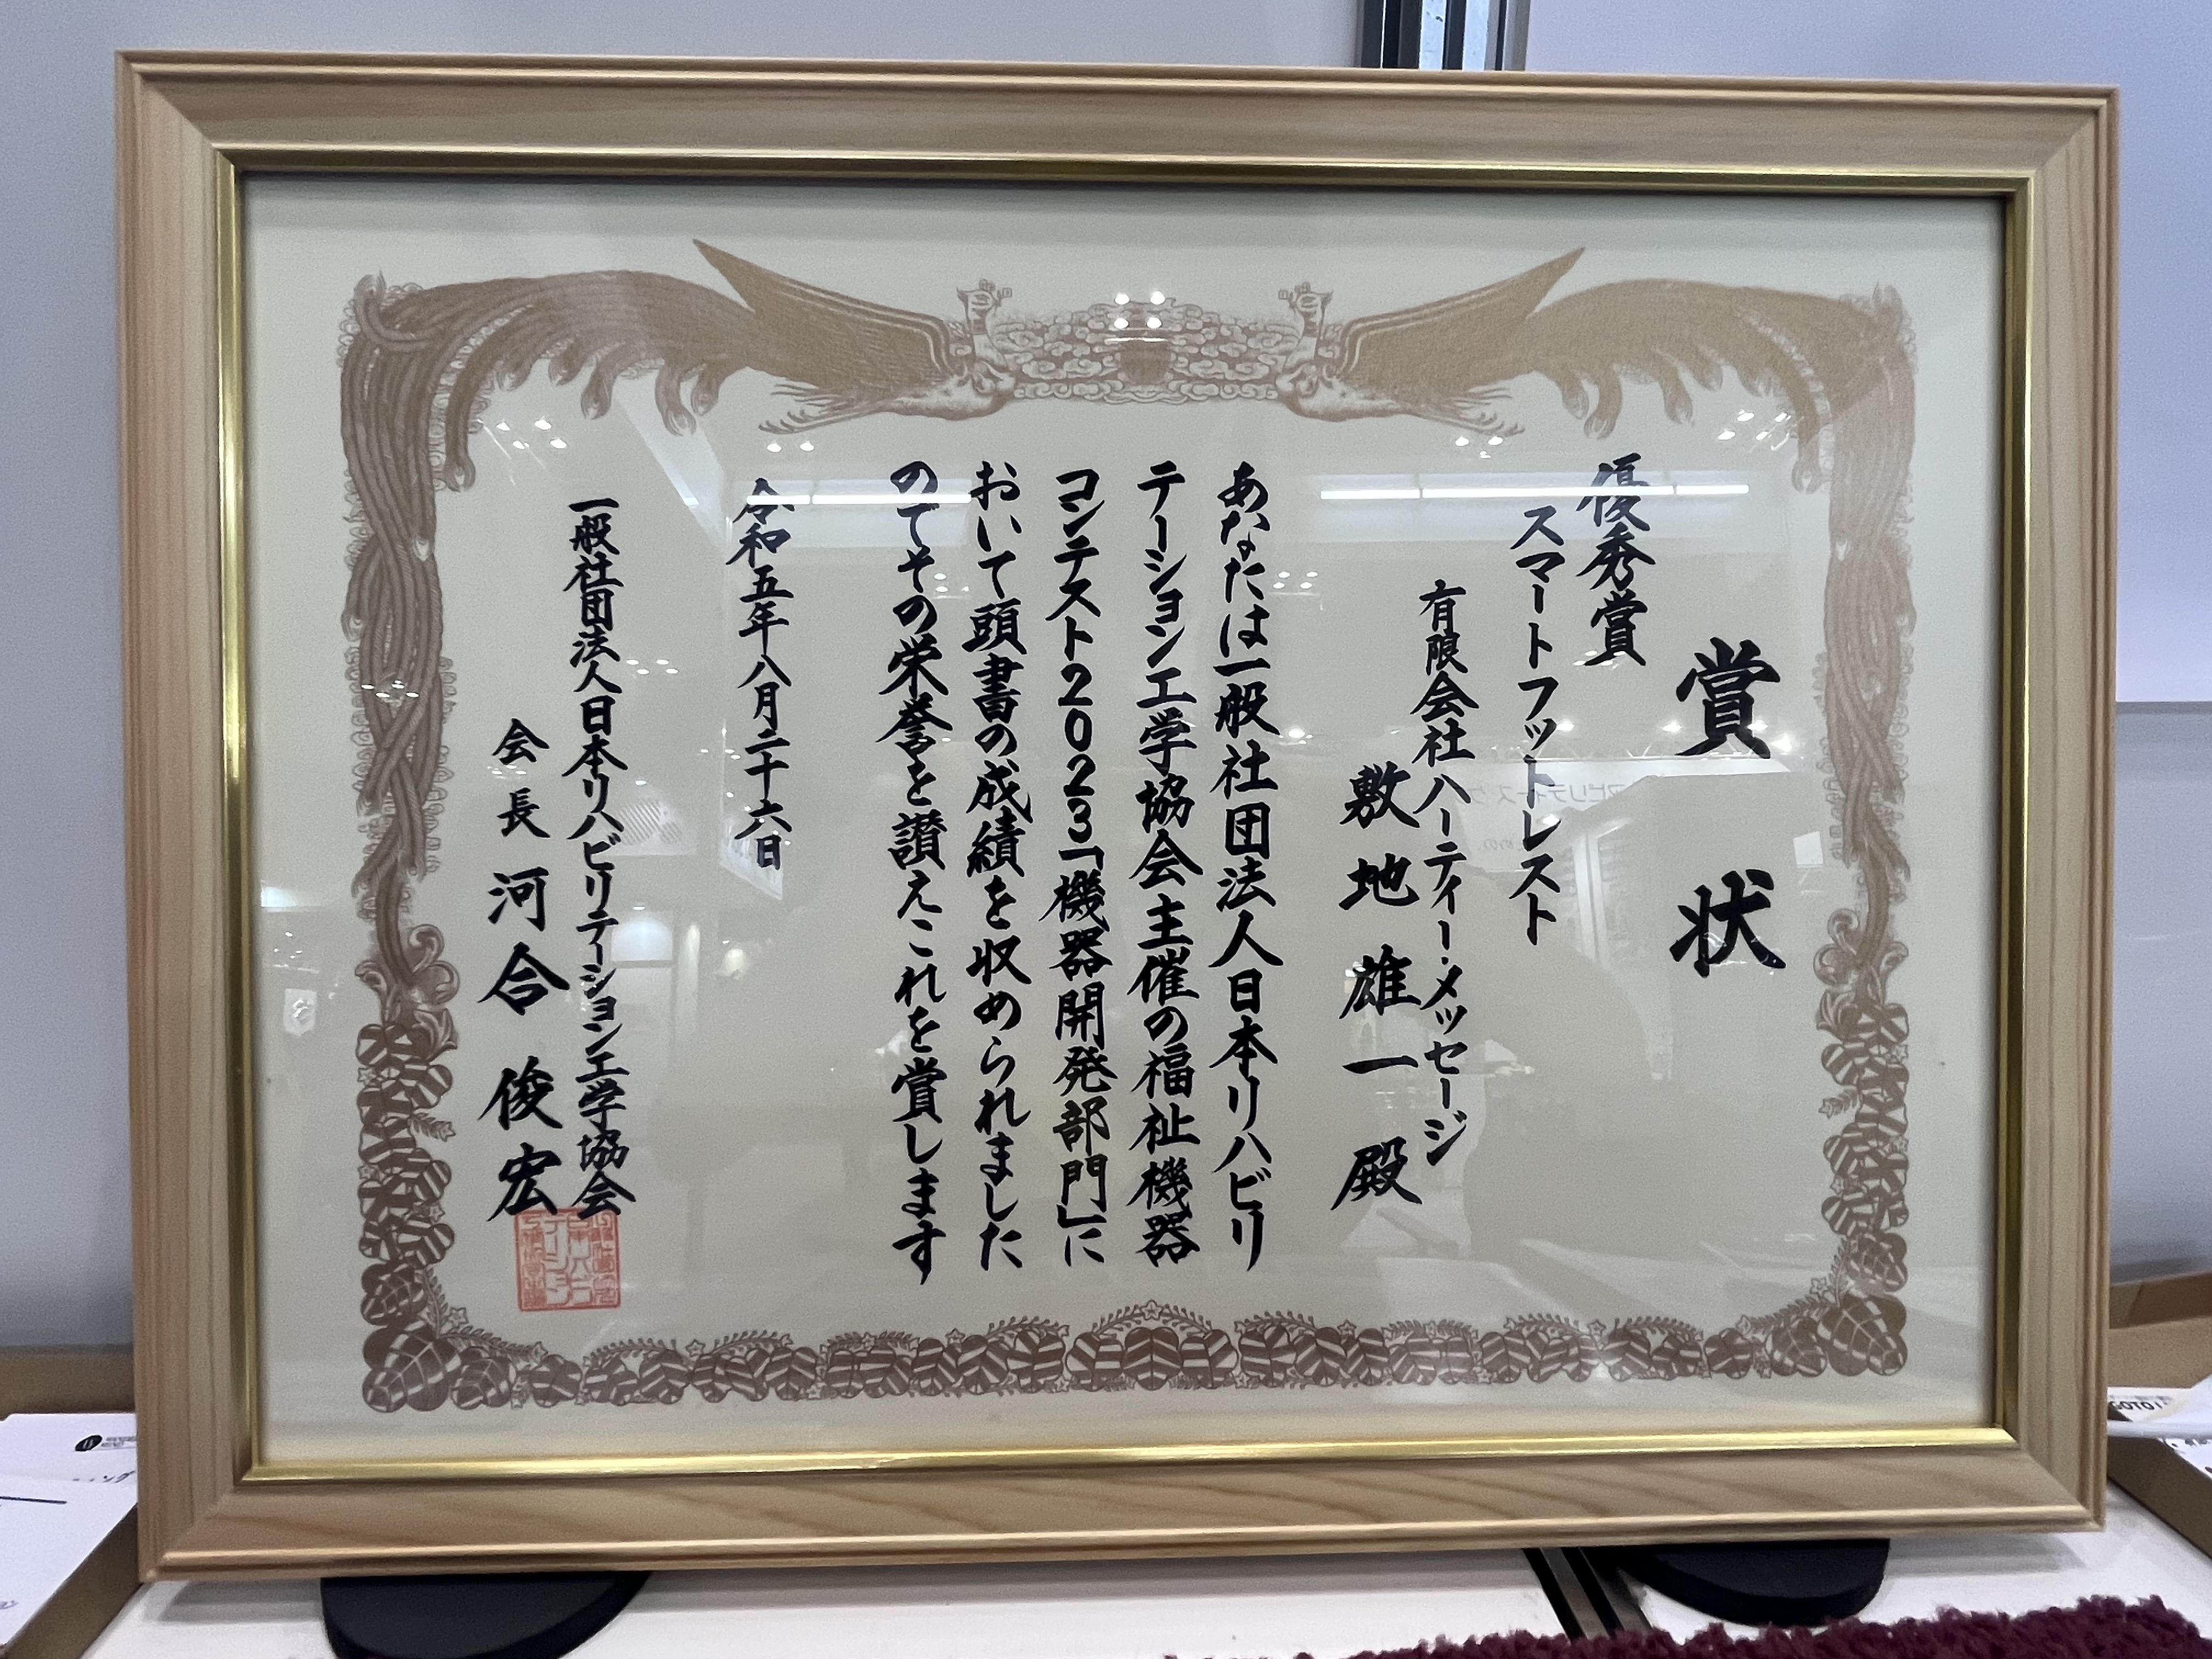 賞状
優秀賞
スマートフットレスト
有限会社ハーティー・メッセージ
敷地雄一殿
あなたは一般社団法人日本リハビリ
テーション工学協会主催の福祉機器
コンテスト2023「機器開発部門」に
おいて頭書の成績を収められました
のでその栄誉を讃えこれを賞します
令和五年八月二十六日
一般社団法人日本リハビリテーション工学協会
会長河合俊宏